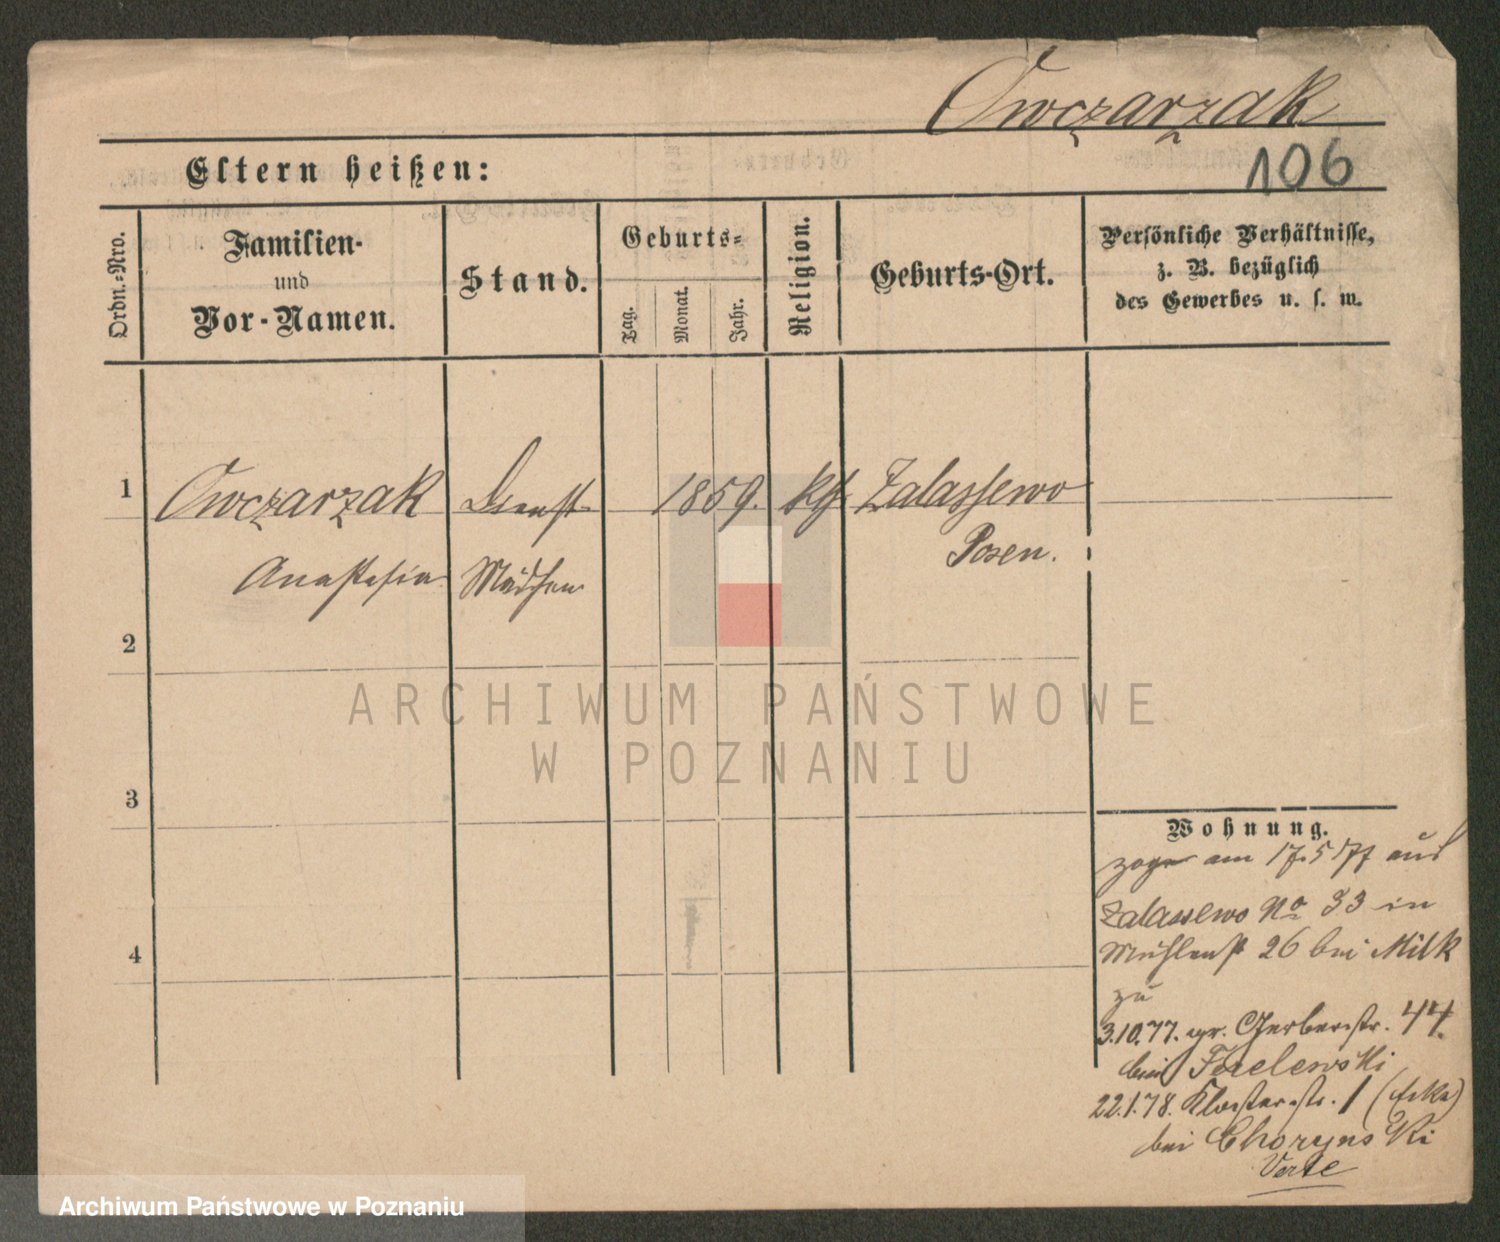 Owczarzak
106
Eltern heißen:
Ordn.-Nro.
Familien-
und
Vor-Namen.
Stand.
Geburts-
Tag.
Monat.
Jahr.
Religion.
Geburts-Ort.
Persönliche Verhältnisse,
z. B. bezüglich
des Gewerbes u. s. w.
1
Owczarzak Dienst 1859. kth Zalassewo
Anastasia Mädchen Posen.
2
3
4
ARCHIWUM PAŃSTWOWE
W POZNANIU
Wohnung.
am 17.5 77 aus
Zalassewo No 33 in
Mühlenst 26 bei Milk
zu
3.10.77. gr. Gerberstr. 44.
bei
22.1.78. Klosterstr. 1 (Ecke)
bei Chorynski
Verte
Archiwum Państwowe w Poznaniu